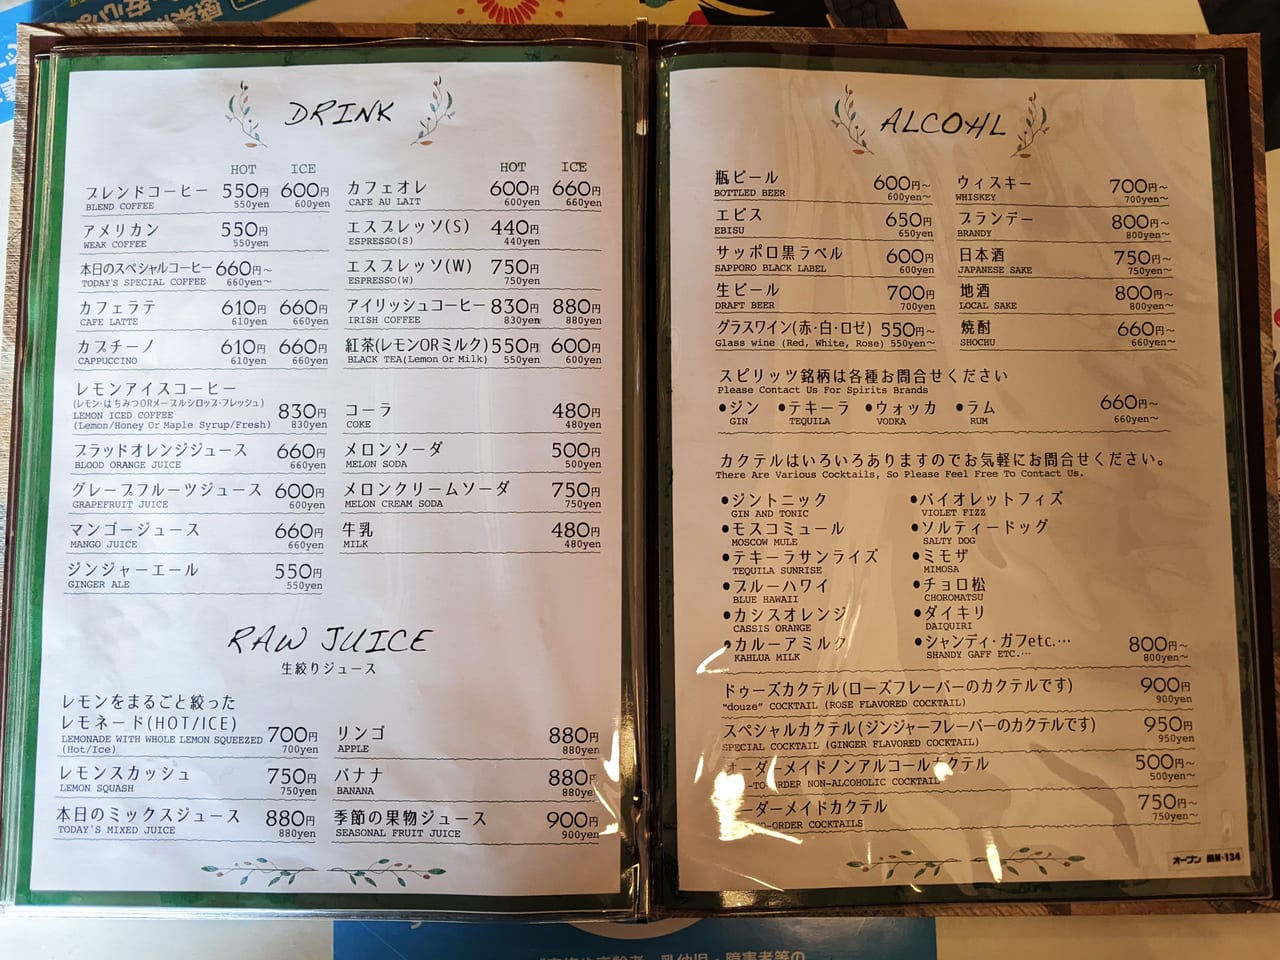 DRINK
HOT ICE
ブレンドコーヒー 550円 600円
BLEND COFFEE 550yen 600yen
アメリカン 550円
WEAK COFFEE 550yen
本日のスペシャルコーヒー 660円～
TODAY'S SPECIAL COFFEE 660yen～
カフェラテ 610円 660円
CAFE LATTE 610yen 660yen
カプチーノ 610円 660円
CAPPUCCINO 610yen 660yen
レモンアイスコーヒー
(レモン・はちみつORメープルシロップ・フレッシュ)
LEMON ICED COFFEE 830円
(Lemon/Honey Or Maple Syrup/Fresh) 830yen
ブラッドオレンジジュース 660円
BLOOD ORANGE JUICE 660yen
グレープフルーツジュース 600円
GRAPEFRUIT JUICE 600yen
マンゴージュース 660円
MANGO JUICE 660yen
ジンジャーエール 550円
GINGER ALE 550yen
HOT ICE
カフェオレ 600円 660円
CAFE AU LAIT 600yen 660yen
エスプレッソ(S) 440円
ESPRESSO(S) 440yen
エスプレッソ(W) 750円
ESPRESSO(W) 750yen
アイリッシュコーヒー 830円 880円
IRISH COFFEE 830yen 880yen
紅茶(レモンORミルク) 550円 600円
BLACK TEA(Lemon Or Milk) 550yen 600yen
コーラ 480円
COKE 480yen
メロンソーダ 500円
MELON SODA 500yen
メロンクリームソーダ 750円
MELON CREAM SODA 750yen
牛乳 480円
MILK 480yen
RAW JUICE
生絞りジュース
レモンをまるごと絞った
レモネード(HOT/ICE) 700円
LEMONADE WITH WHOLE LEMON SQUEEZED
(Hot/Ice) 700yen
レモンスカッシュ 750円
LEMON SQUASH 750yen
本日のミックスジュース 880円
TODAY'S MIXED JUICE 880yen
リンゴ 880円
APPLE 880yen
バナナ 880円
BANANA 880yen
季節の果物ジュース 900円
SEASONAL FRUIT JUICE 900yen
ALCOHL
瓶ビール 600円～
BOTTLED BEER 600yen～
エビス 650円
EBISU 650yen
サッポロ黒ラベル 600円
SAPPORO BLACK LABEL 600yen
生ビール 700円
DRAFT BEER 700yen
グラスワイン(赤・白・ロゼ) 550円～
Glass wine (Red, White, Rose) 550yen～
ウィスキー 700円～
WHISKEY 700yen～
ブランデー 800円～
BRANDY 800yen～
日本酒 750円～
JAPANESE SAKE 750yen～
地酒 800円～
LOCAL SAKE 800yen～
焼酎 660円～
SHOCHU 660yen～
スピリッツ銘柄は各種お問合せください
Please Contact Us For Spirits Brands
•ジン •テキーラ •ウォッカ •ラム 660円～
GIN TEQUILA VODKA RUM 660yen～
カクテルはいろいろありますのでお気軽にお問合せください。
There Are Various Cocktails, So Please Feel Free To Contact Us.
•ジントニック
GIN AND TONIC
•モスコミュール
MOSCOW MULE
•テキーラサンライズ
TEQUILA SUNRISE
•ブルーハワイ
BLUE HAWAII
•カシスオレンジ
CASSIS ORANGE
•カルーアミルク
KAHLUA MILK
•バイオレットフィズ
VIOLET FIZZ
•ソルティードッグ
SALTY DOG
•ミモザ
MIMOSA
•チョロ松
CHOROMATSU
•ダイキリ
DAIQUIRI
•シャンディ・ガフetc.… 800円～
SHANDY GAFF ETC.… 800yen～
ドゥーズカクテル(ローズフレーバーのカクテルです) 900円
"douze" COCKTAIL (ROSE FLAVORED COCKTAIL) 900yen
スペシャルカクテル(ジンジャーフレーバーのカクテルです) 950円
SPECIAL COCKTAIL (GINGER FLAVORED COCKTAIL) 950yen
オーダーメイドノンアルコールカクテル 500円～
-TO-ORDER NON-ALCOHOLIC COCKTAIL 500yen～
ーダーメイドカクテル 750円～
O-ORDER COCKTAILS 750yen～
オープン MN-134
乳幼児・障害者等の